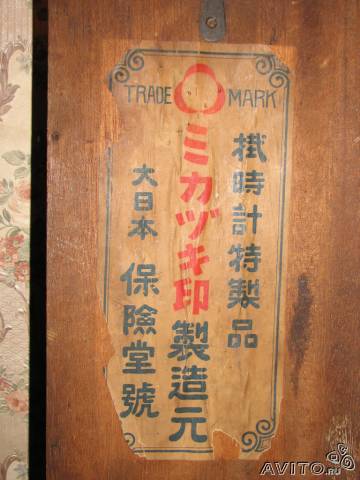 TRADE MARK
掛時計特製品
ミカヅキ印製造元
大日本 保險堂號
AVITO.RU